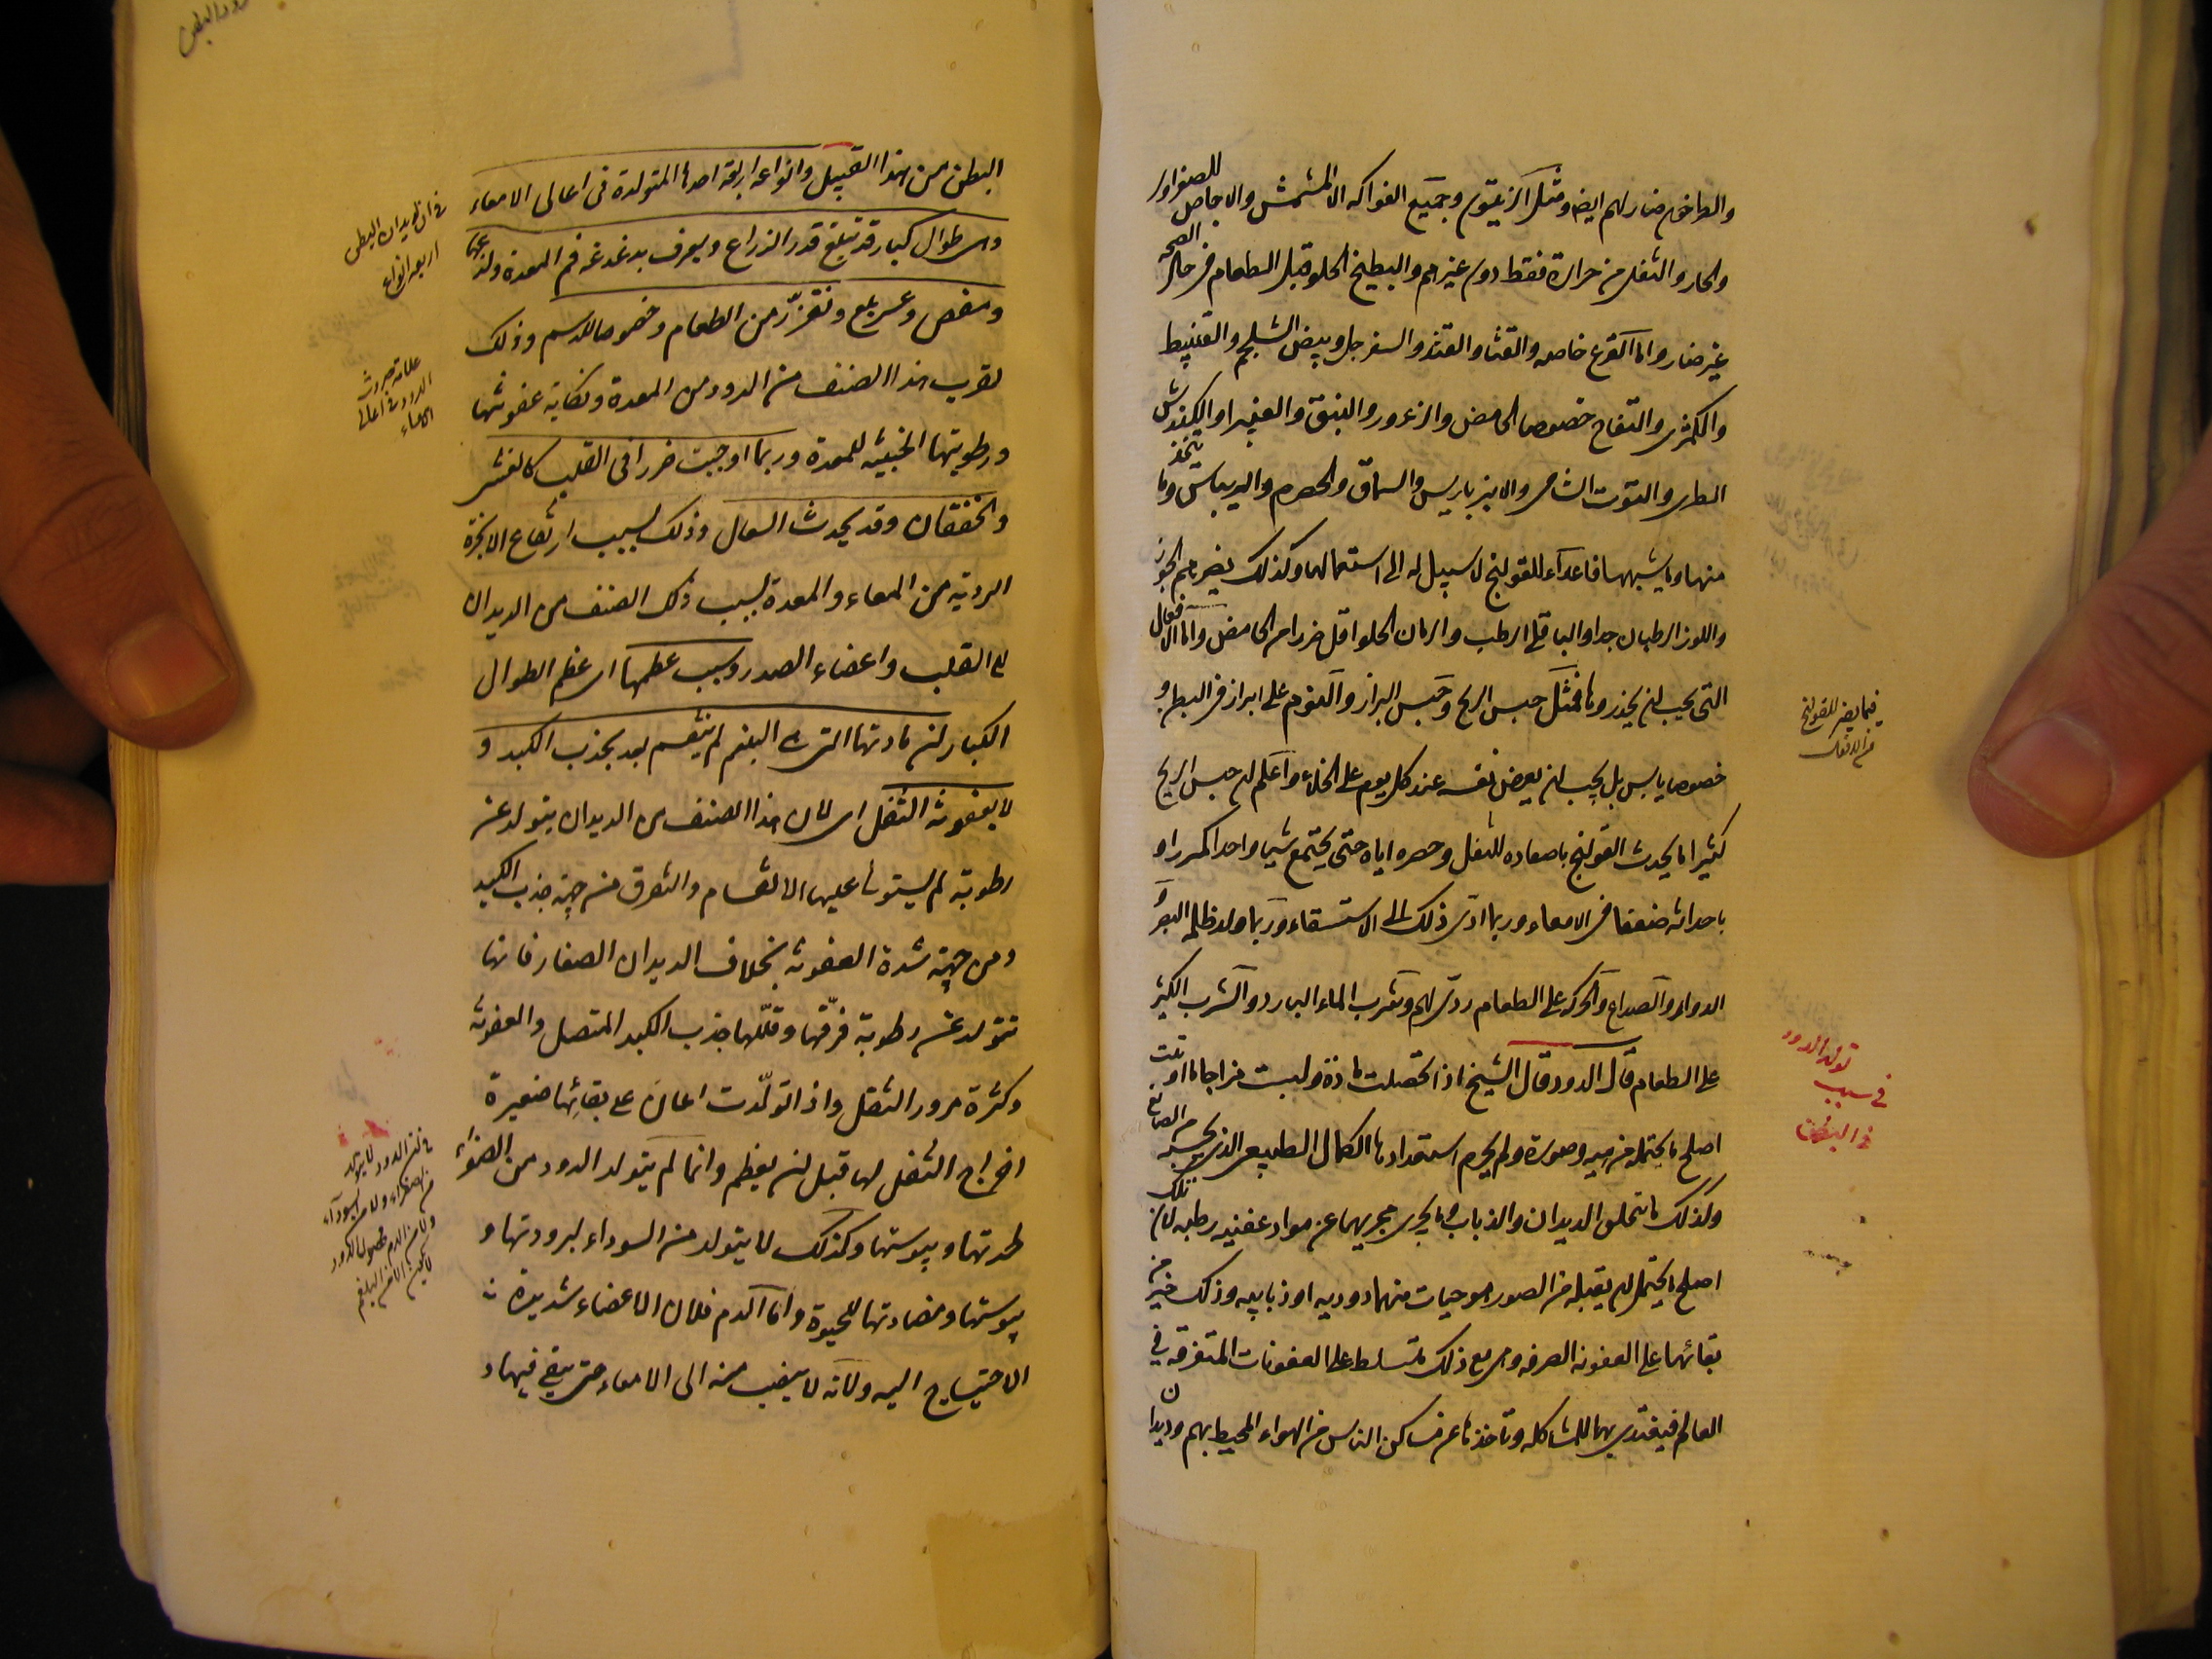 والطرخون ضار لهم ايضا ومثل الزيتون وجميع الفواكه الا المشمش والاجاص للصفراوى
والحار والثفلى من حرارة فقط دون غيرهم والبطيخ الحلو قبل الطعام فى حال الصحه
غير ضار واما القرع خاصه والقثا والقثد والسفرجل وبيض الشلجم والقنبيط
والكمثرى والتفاح خصوصا الحامض والزعرور والنبق والغبيرا والكندش
الطرى والتوت الشامى والانبرباريس والسماق والحصرم والريباس وما يتخذ
منها وما يشبهها فاعداء للقولنج لا سبيل له الى استعمالها وكذلك يضرهم الجوز
واللوز الرطبان جدا والباقلى الرطب والرمان الحلو اقل ضررا من الحامض واما الافعال
التى يجب ان يحذروها فمثل حبس الريح وحبس البراز والنوم على براز فى البطن و
خصوصا يابس بل يجب ان يعرض نفسه عند كل يوم على الخلاء واعلم ان حبس الريح
كثيرا ما يحدث القولنج باصعاده للثفل وحصره اياه حتى يجتمع شيا واحدا مكررا و
باحداثه ضعفا فى الامعاء وربما ادى ذلك الى الاستسقاء وربما ولد ظلمة البصر و
الدوار والصداع والحركه على الطعام ردى لهم وشرب الماء البارد والشرب الكثير
على الطعام قال الدود قال الشيخ اذا تحصلت مادة وليست مزاجا ما اوتيت
اصلح ما يحتمله من هيه وصورة ولم يحرم استعدادها الكمال الطبيعى الذى يحسبه من الصانع
ولذلك ما تتخلق الديدان والذباب وما يجرى مجريهما عن مواد عفنيه رطبه لان تلك
اصلح ما يحتمل ان يقبله من الصور هو حيات منها دوديه او ذبابيه وذلك خير من
بقائها على العفونه الصرفه وهى مع ذلك تتسلط على العفونات المتفرقه فى
العالم فيغتذى بها للمشاكله وتاخذها عن مساكن الناس من الهواء المحيط بهم وديدان
فيما يضر للقولنج
من الافعال
تولد الدود
فى سبب
فى البطن
البطن من هذا القبيل وانواعه اربعة احدها المتولدة فى اعالى الامعاء
وهى طوال كبار قد تبلغ قدر الذراع ويعرف بدغدغه فم المعدة ولذعها
ومغص وعسر بلع وتقزّز من الطعام وخصوصا الدسم وذلك
لقرب هذا الصنف من الدود من المعدة ونكاية عفونتها
ورطوبتها الخبيثه للمعدة وربما اوجبت ضررا فى القلب كالغشى
والخفقان وقد يحدث السعال وذلك بسبب ارتفاع الابخرة
الرديه من المعاء والمعدة بسبب ذلك الصنف من الديدان
الى القلب واعضاء الصدر وسبب عظمها اى عظم الطوال
الكبار ان مادتها التى هى البلغم لم ينقسم بعد بجذب الكبد و
لا بعفونة الثفل اى لان هذا الصنف من الديدان يتولد عن
رطوبة لم يستول عليها الانقسام والتفرق من جهة جذب الكبد
ومن جهة شدة العفونة بخلاف الديدان الصغار فانها
تتولد عن رطوبة فرّقها وقلّلها جذب الكبد المتصل والعفونة
وكثرة مرور الثفل واذا تولّدت اعان على بقائها صغيرة
اخراج الثفل لها قبل ان يعظم وانما لم يتولد الدود من الصفراء
لحدتها ويبوستها وكذلك لا يتولد من السوداء لبرودتها و
يبوستها ومضادتها للحيوة واما الدم فلان الاعضاء شديدة
الاحتياج اليه ولانه لا ينصب منه الى الامعاء حتى يبقى فيها و
فى ان ديدان البطن
اربعة انواع
علامة حدوث
الدود فى اعالى
الامعاء
فى ان الدود لا يتولد
من الصفراء ولا من السوداء
ولا من الدم
الا من البلغم